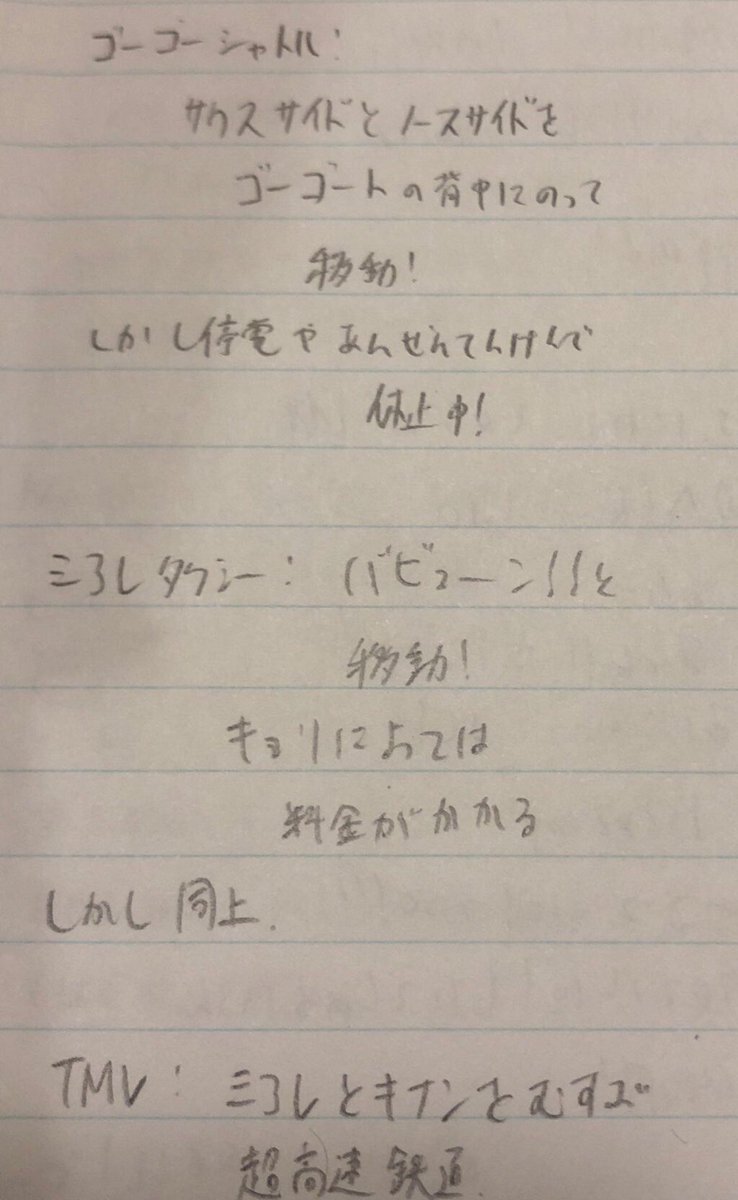 ゴーゴーシャトル:
サウスサイドとノースサイドを
ゴーゴートの背中にのって
移動!
しかし停電やあんぜんてんけんで
休止中!
ミアレタクシー: バビューーンッッと
移動!
キョリによっては
料金がかかる
しかし同上.
TMV: ミアレとキナンをむすぶ
超高速鉄道.